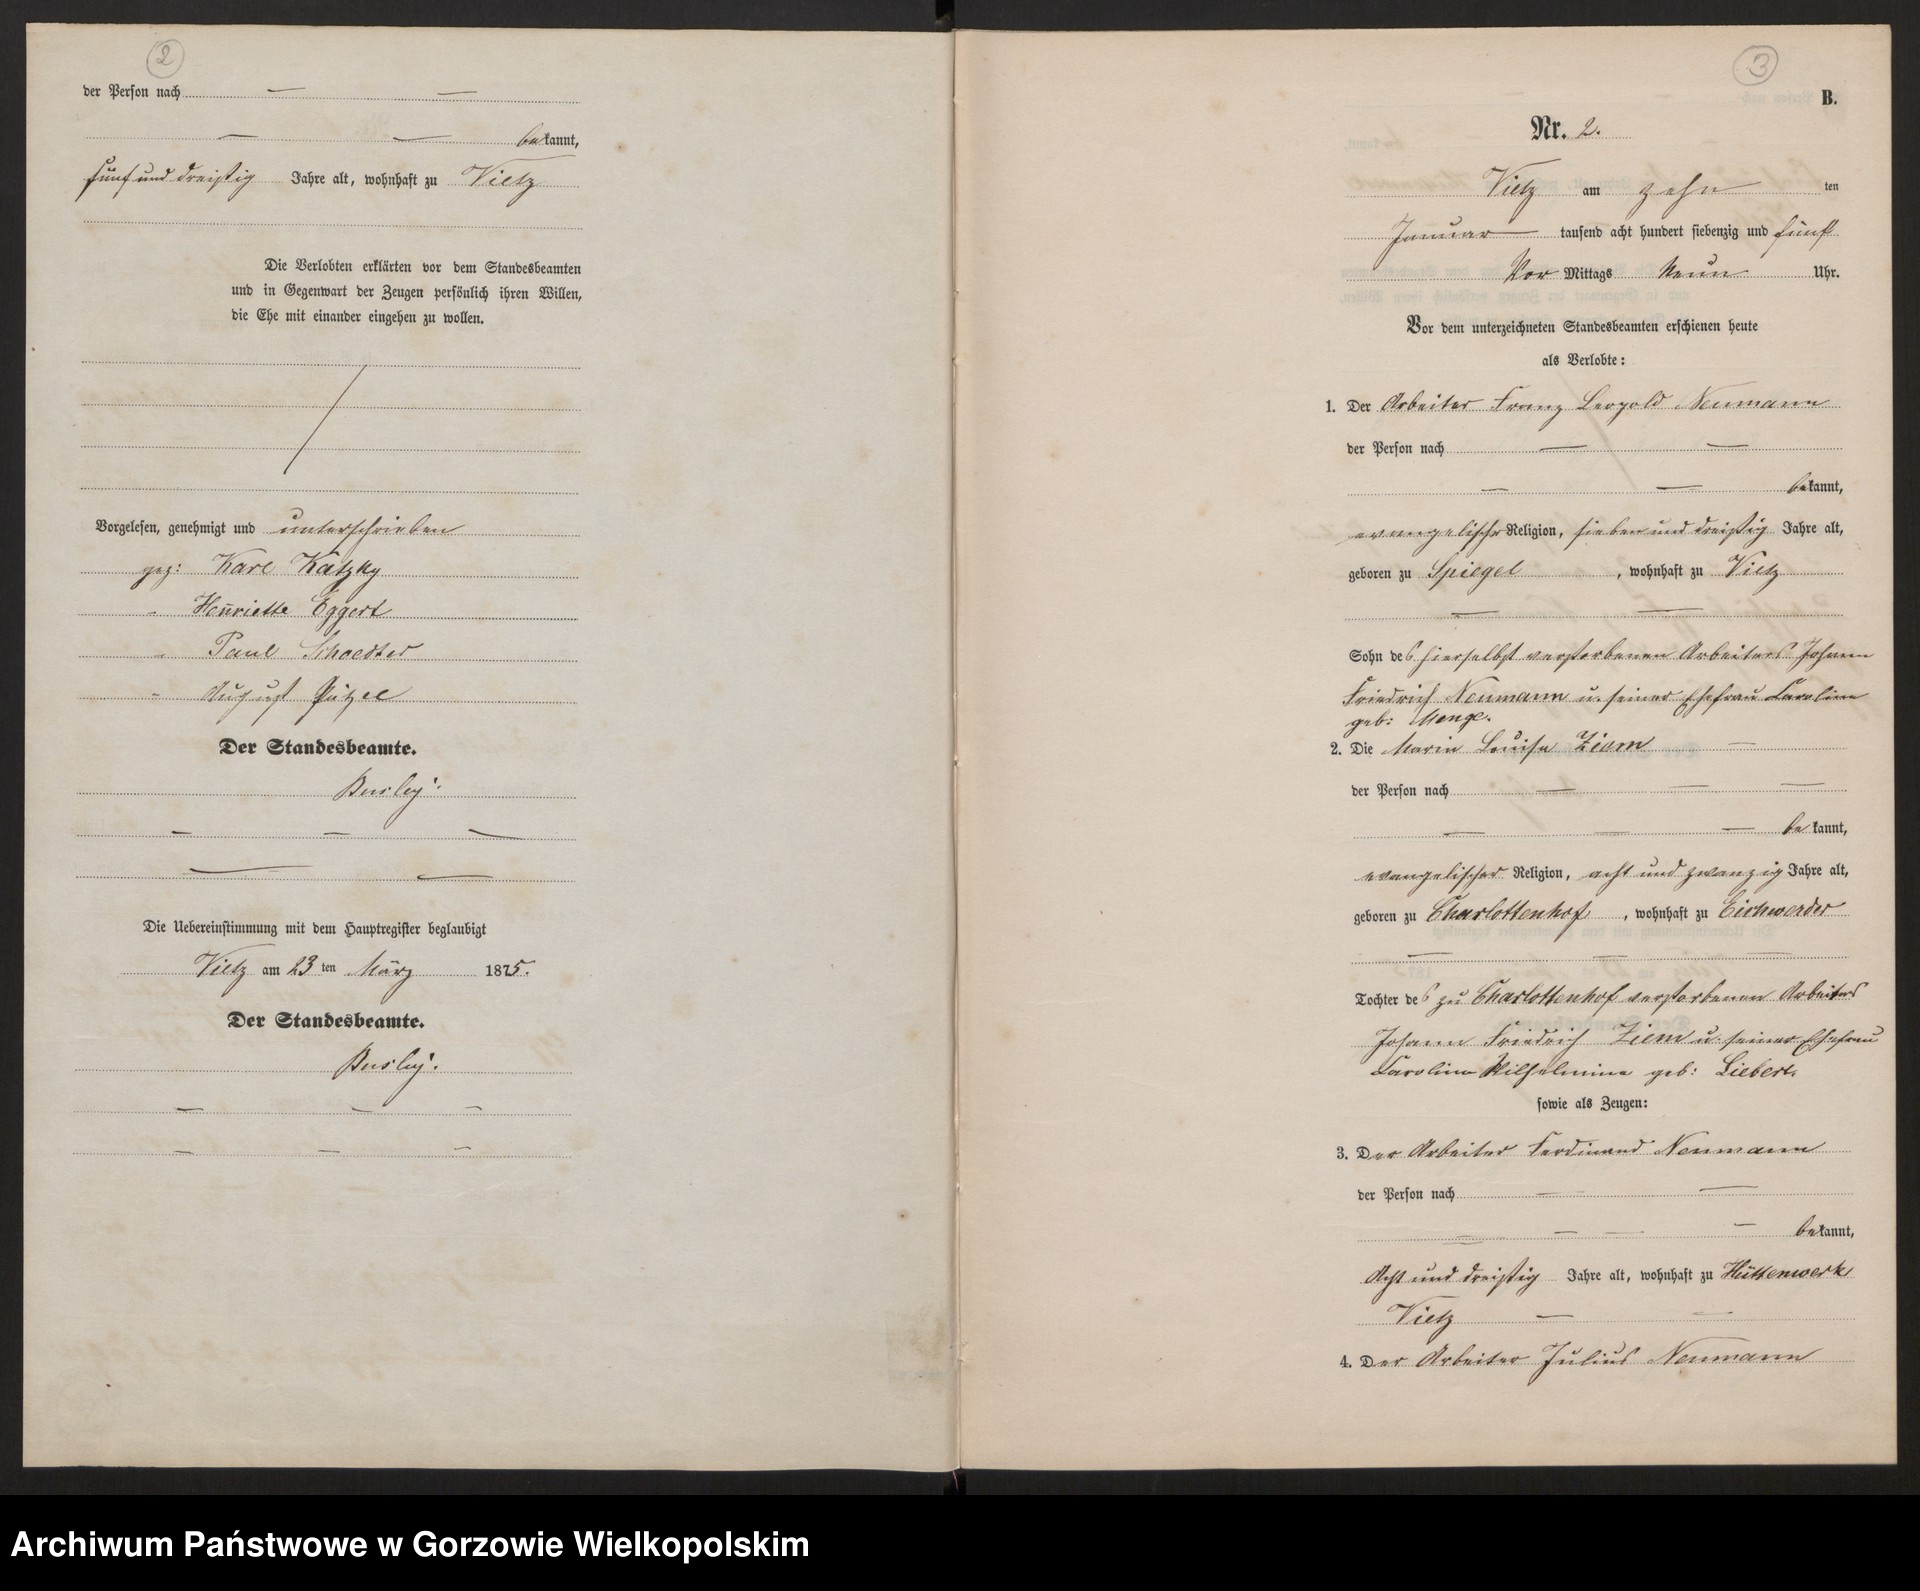 2
der Person nach — —
— — bekannt,
fünf und dreißig Jahre alt, wohnhaft zu Vietz
Die Verlobten erklärten vor dem Standesbeamten
und in Gegenwart der Zeugen persönlich ihren Willen,
die Ehe mit einander eingehen zu wollen.
Vorgelesen, genehmigt und unterschrieben
gez: Karl Katzky
" Henriette Eggert
" Paul Schoedter
" August
Der Standesbeamte.
Busley.
— — —
— —
Die Uebereinstimmung mit dem Hauptregister beglaubigt
Vietz am 23 ten März 1875.
Der Standesbeamte.
Busley.
— — —
— — —
3
B.
Nr. 2.
Vietz am zehn ten
Januar tausend acht hundert siebenzig und fünf
Vor Mittags Neun Uhr.
Vor dem unterzeichneten Standesbeamten erschienen heute
als Verlobte:
1. Der Arbeiter Franz Leopold Neumann
der Person nach — —
— — bekannt,
evangelischer Religion, sieben und dreißig Jahre alt,
geboren zu Spiegel, wohnhaft zu Vietz
— —
Sohn des hierselbst verstorbenen Arbeiters Johann
Friedrich Neumann u. seiner Ehefrau Caroline
geb: Menge.
2. Die Marie Louise Ziem —
der Person nach — — —
— — — bekannt,
evangelischer Religion, acht und zwanzig Jahre alt,
geboren zu Charlottenhof, wohnhaft zu Eichwerder
— — —
Tochter des zu Charlottenhof verstorbenen Arbeiters
Johann Friedrich Ziem u. seiner Ehefrau
Caroline Wilhelmine geb: Liebert.
sowie als Zeugen:
3. Der Arbeiter Ferdinand Neumann
der Person nach — —
— — — — bekannt,
Acht und dreißig Jahre alt, wohnhaft zu Hüttenwerk
Vietz — —
4. Der Arbeiter Julius Neumann
Archiwum Państwowe w Gorzowie Wielkopolskim